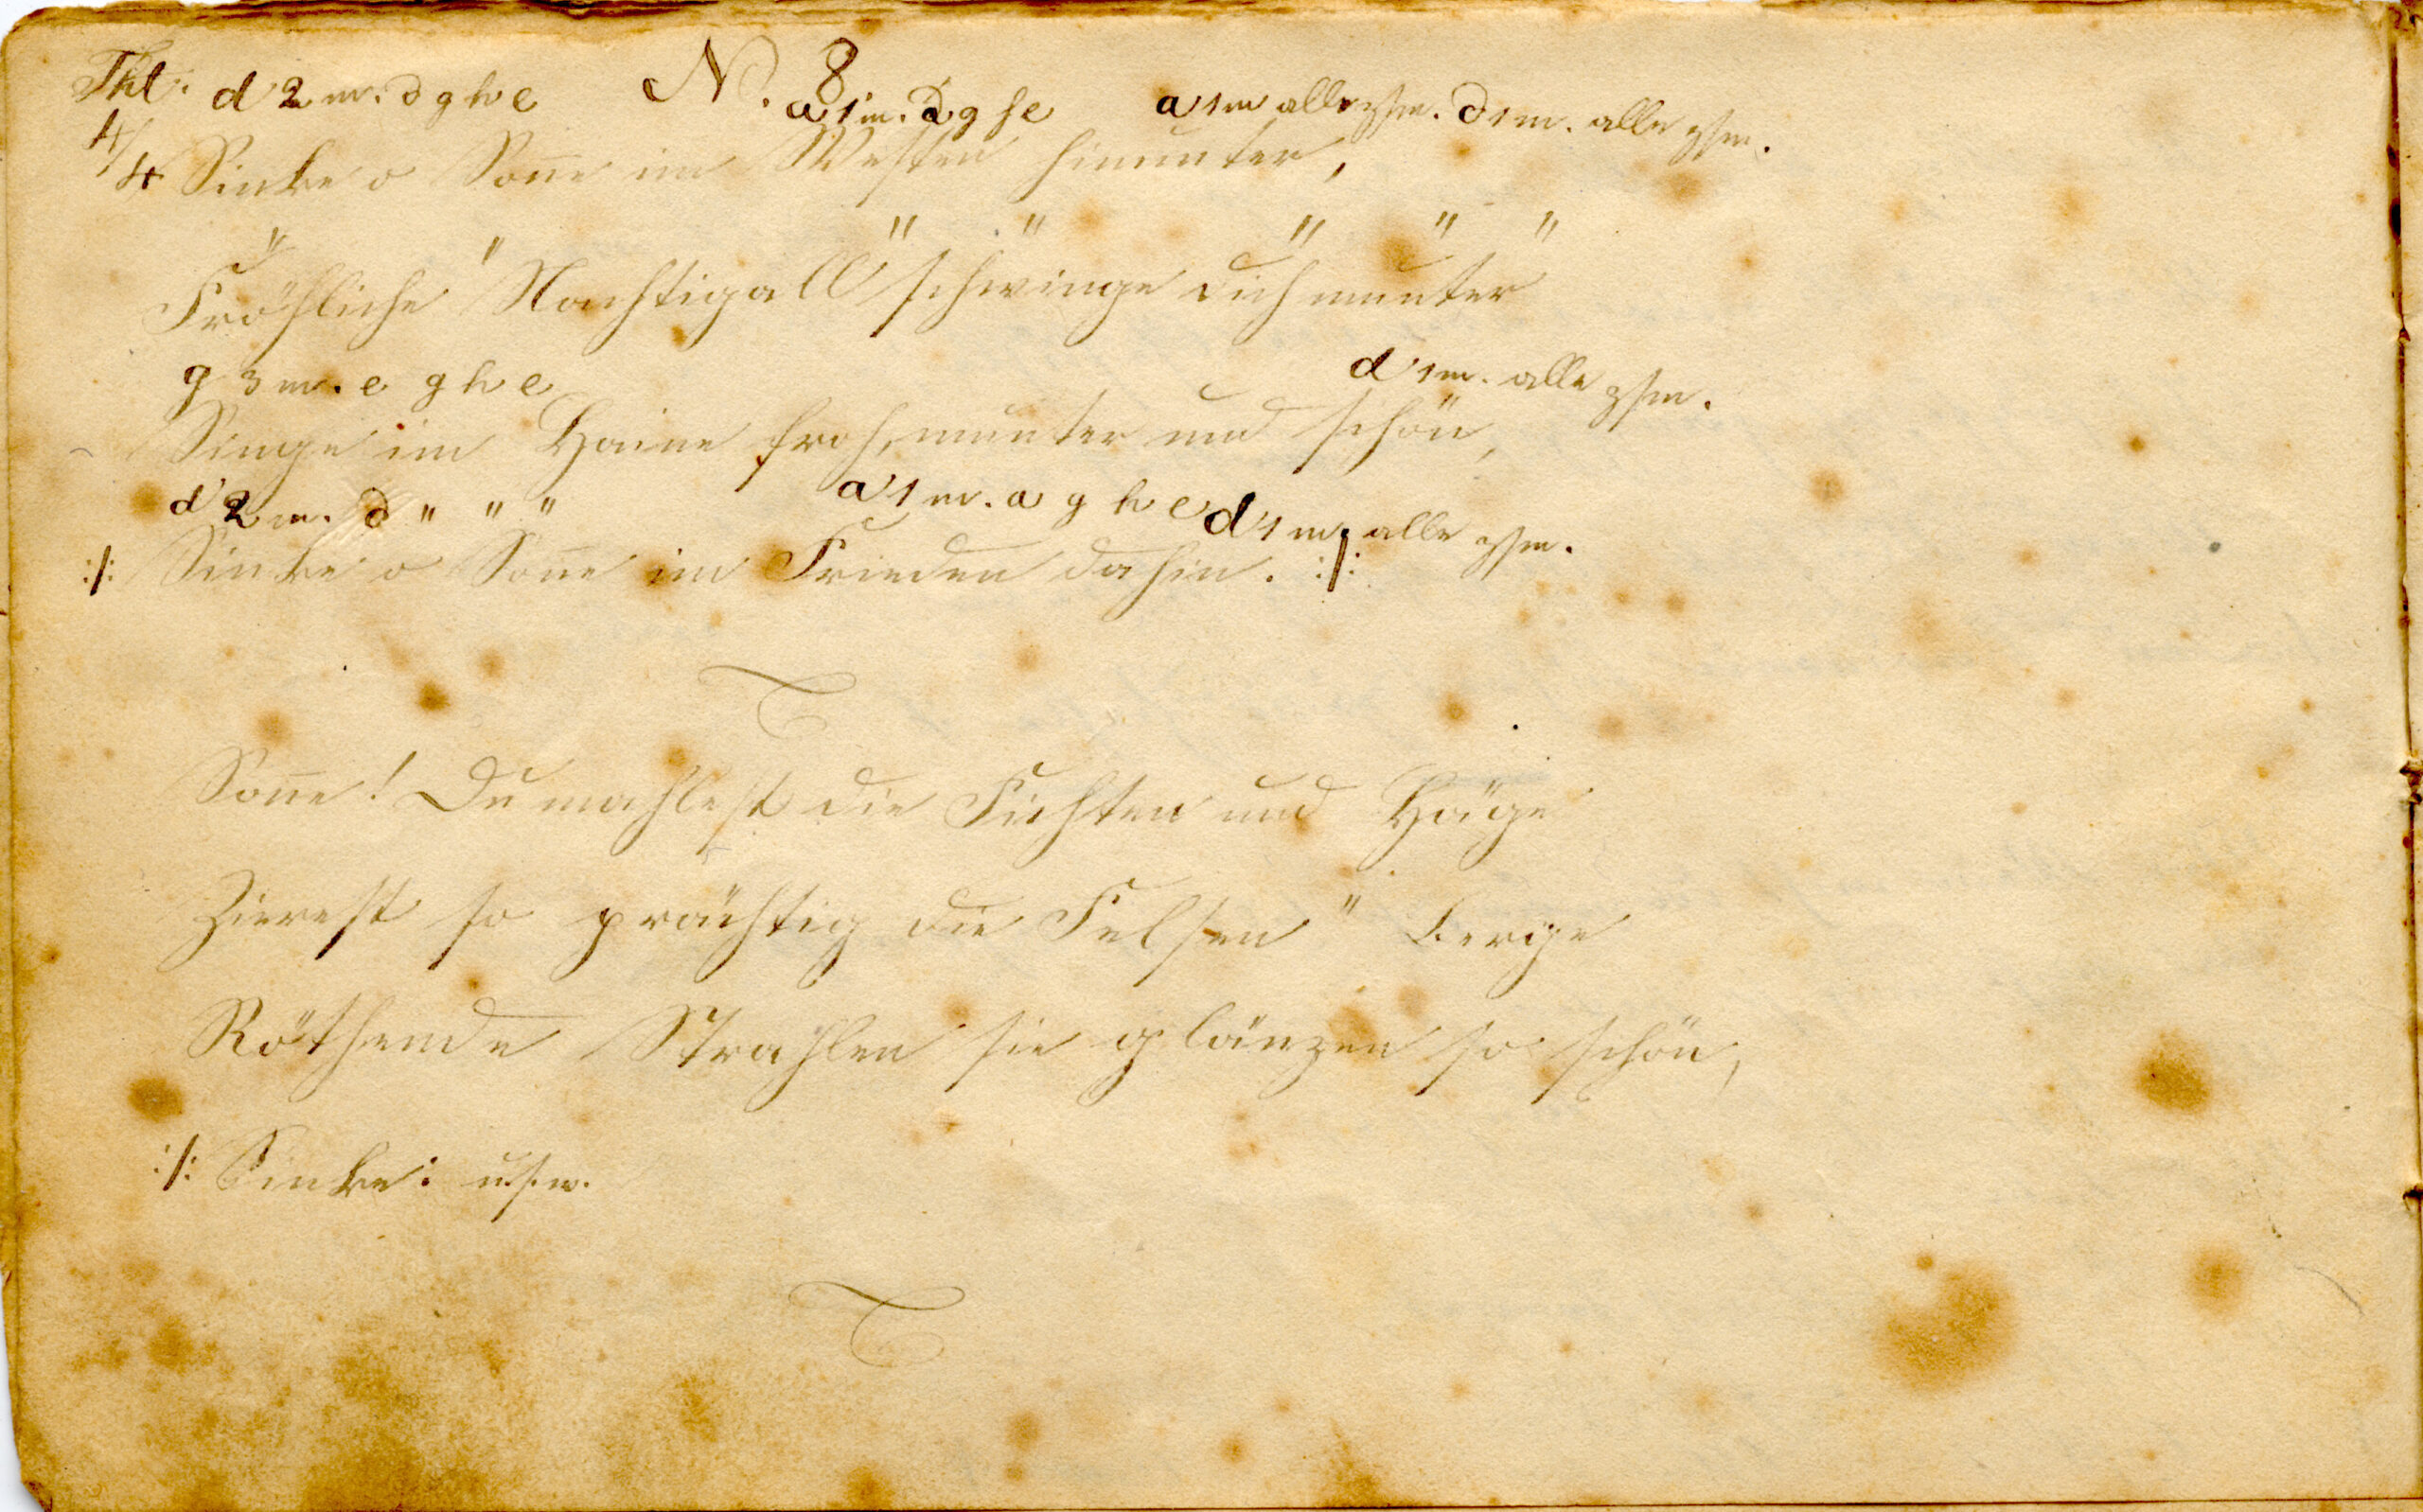 Tkt. d 2 m. d g h e N. 8 a 1 m. d g h e a 1 m alle zsm. d 1 m. alle zsm.
4/4 Sinke o Sone im Westen hinunter,
" " " " " " "
Fröhliche Nachtigall schwinge dich munter
g 3 m. e g h e d 1 m. alle zsm.
Singe im Haine froh, munter und schön,
d 2 m. d " " " a 1 m. a g h e d 1 m. alle zsm.
:/: Sinke o Sone im Frieden dahin. :/:
Sone! Du mahlest die Fichten und Häge
Zierest so prächtig die Felsen " Berge
Röthende Strahlen sie glänzen so schön,
:/: Sinke: u.s.w.